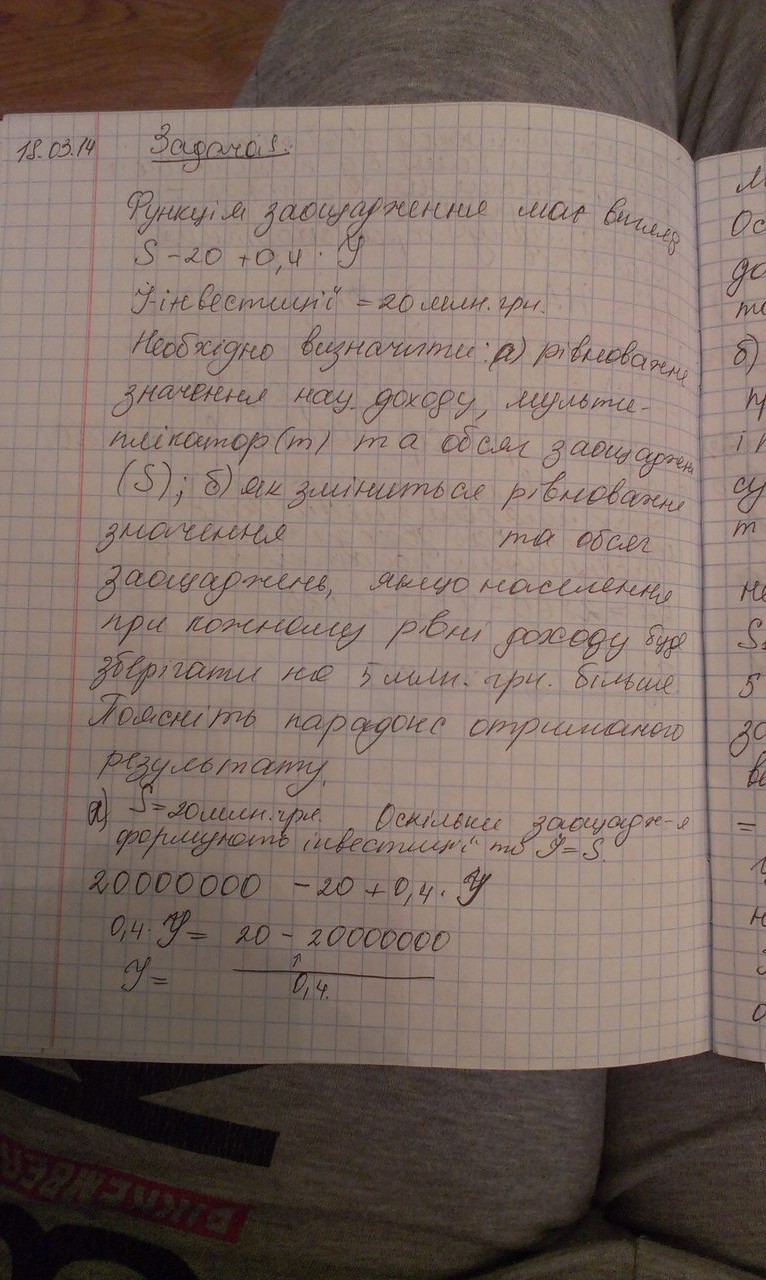 18.03.14 Задача 1.
Функція заощадження має вигляд
S - 20 + 0,4 · У
У-інвестиції = 20 млн. грн.
Необхідно визначити: а) рівноважне
значення нац. доходу, мульти-
плікатор (m) та обсяг заощаджень
(S); б) як зміниться рівноважне
значення та обсяг
заощаджень, якщо населення
при кожному рівні доходу буде
зберігати на 5 млн. грн. більше
Поясніть парадокс отриманого
результату.
а) S = 20 млн. грн. Оскільки заощадж-я
формують інвестиції то У = S.
20000000 - 20 + 0,4 · У
0,4 · У = 20 - 20000000
У =
0,4.
м
Ос
до
то
б)
п
і п
су
т
не
S
5
за
ве
=
н
о
BURKENBER